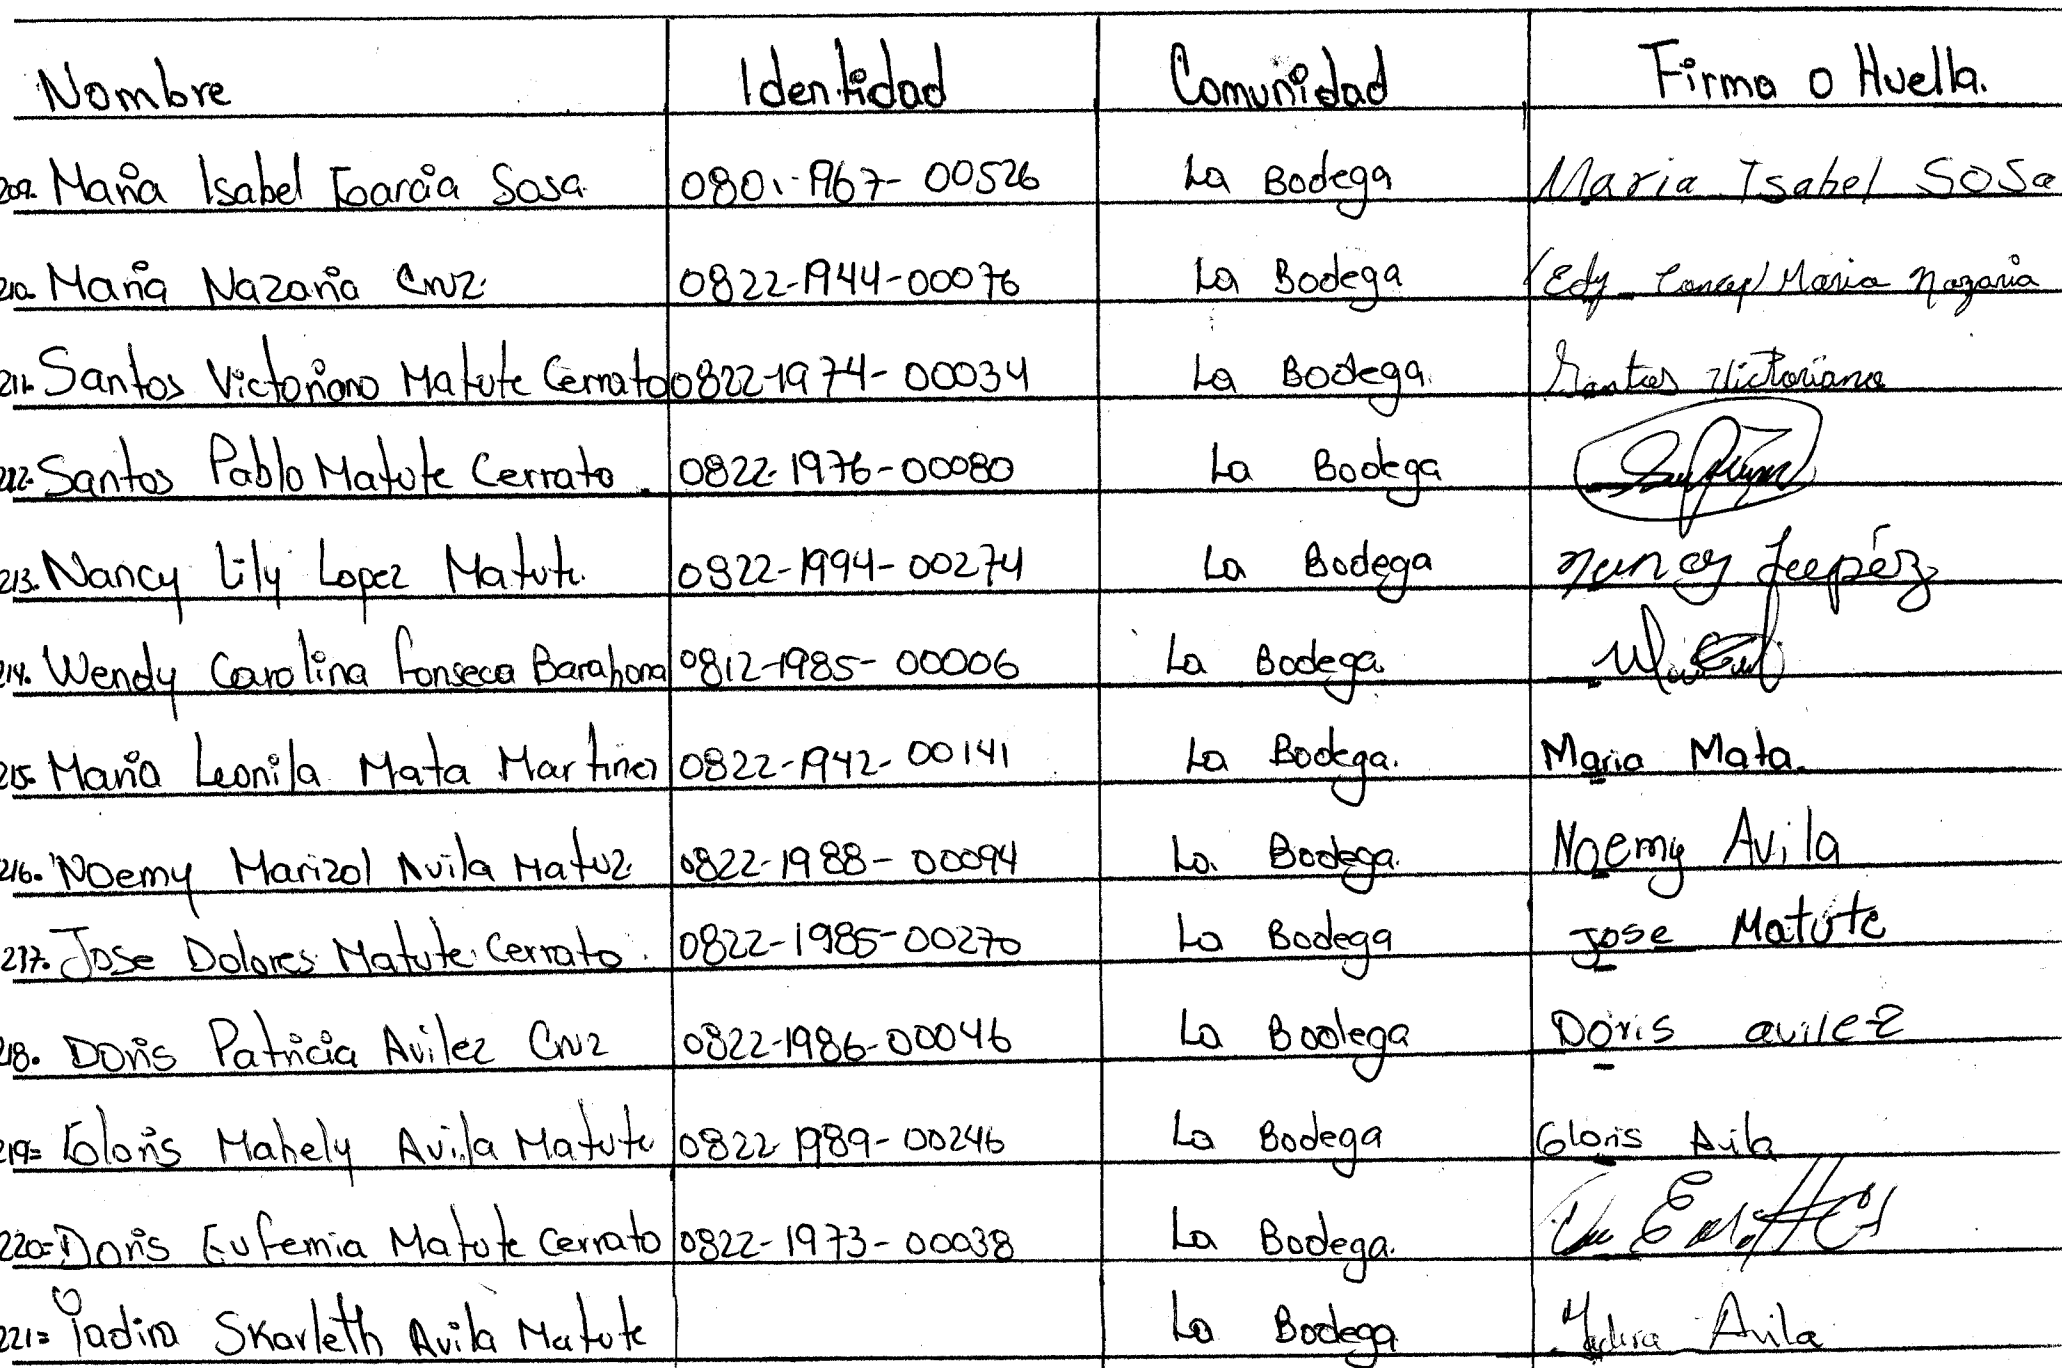 Nombre Identidad Comunidad Firma o Huella.
209. Maria Isabel Garcia Sosa 0801-1967-00526 La Bodega Maria Isabel Sosa
210. Maria Nazaria Cruz 0822-1944-00076 La Bodega Edy Maria Nazaria
211. Santos Victoriano Matute Cerrato 0822-1974-00034 La Bodega. Santos Victoriano
212. Santos Pablo Matute Cerrato. 0822-1976-00080 La Bodega
213. Nancy Lily Lopez Matute. 0822-1994-00274 La Bodega
214. Wendy Carolina Fonseca Barahona 0812-1985-00006 La Bodega.
215. Maria Leonila Mata Martinez 0822-1942-00141 La Bodega. Maria Mata.
216. Noemy Marizol Avila Matuz 0822-1988-00094 La. Bodega. Noemy Avila
217. Jose Dolores Matute Cerrato. 0822-1985-00270 La Bodega Jose Matute
218. Doris Patricia Avilez Cruz 0822-1986-00046 La Bodega Doris avilez
219= Gloris Mahely Avila Matute 0822-1989-00246 La Bodega Gloris Avila
220= Doris Eufemia Matute Cerrato 0822-1973-00038 La Bodega.
221= Yadira Skarleth Avila Matute La Bodega Yadira Avila